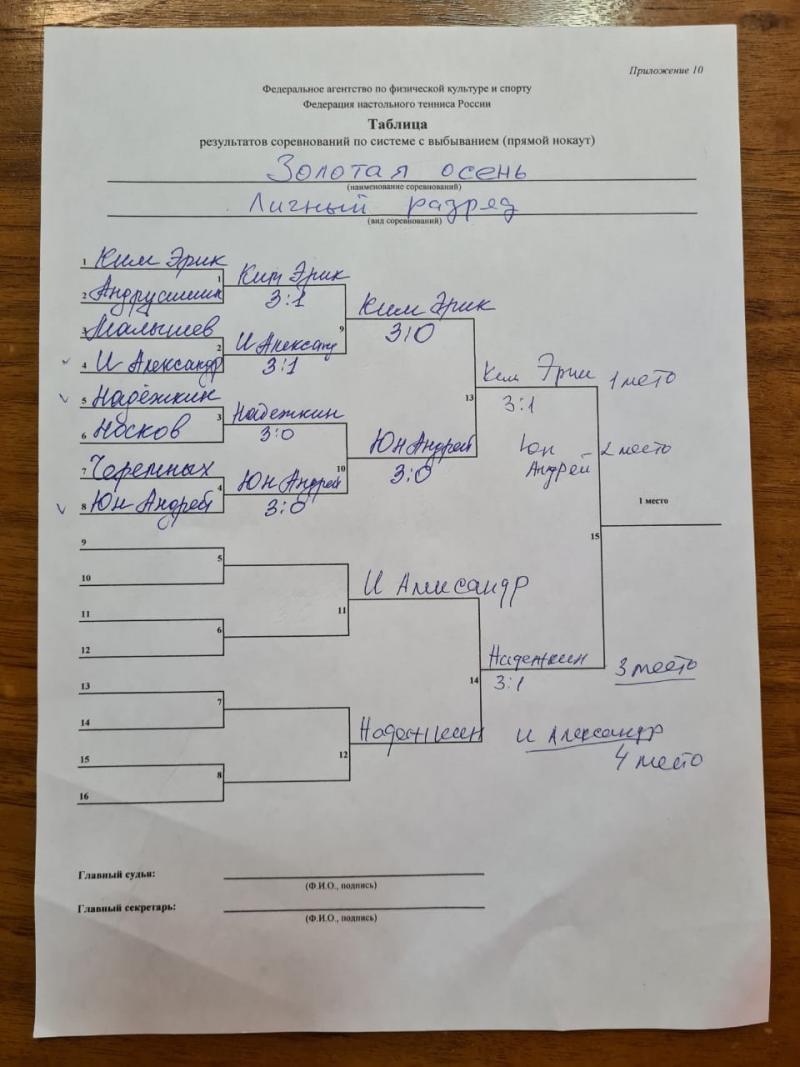 Приложение 10
Федеральное агентство по физической культуре и спорту
Федерация настольного тенниса России
Таблица
результатов соревнований по системе с выбыванием (прямой нокаут)
Золотая осень
(наименование соревнований)
Личный разряд
(вид соревнований)
1 Ким Эрик
1
2
3 Малышев
2
4 И Александр
5 Надёжкин
3
6 Носков
7 Черемных
4
8 Юн Андрей
Ким Эрик
3:1
9
И Александ
3:1
Надежкин
3:0
10
Юн Андрей
3:0
Ким Эрик
3:0
13
Юн Андрей
3:0
Ким Эрик
1 место
3:1
Юн
Андрей
2 место
1 место
15
9
5
10
11
6
12
13
7
14
15
8
16
11
12
И Александр
14
Надежкин
Надежкин
3:1
3 место
И Александр
4 место
Главный судья:
(Ф.И.О., подпись)
Главный секретарь:
(Ф.И.О., подпись)